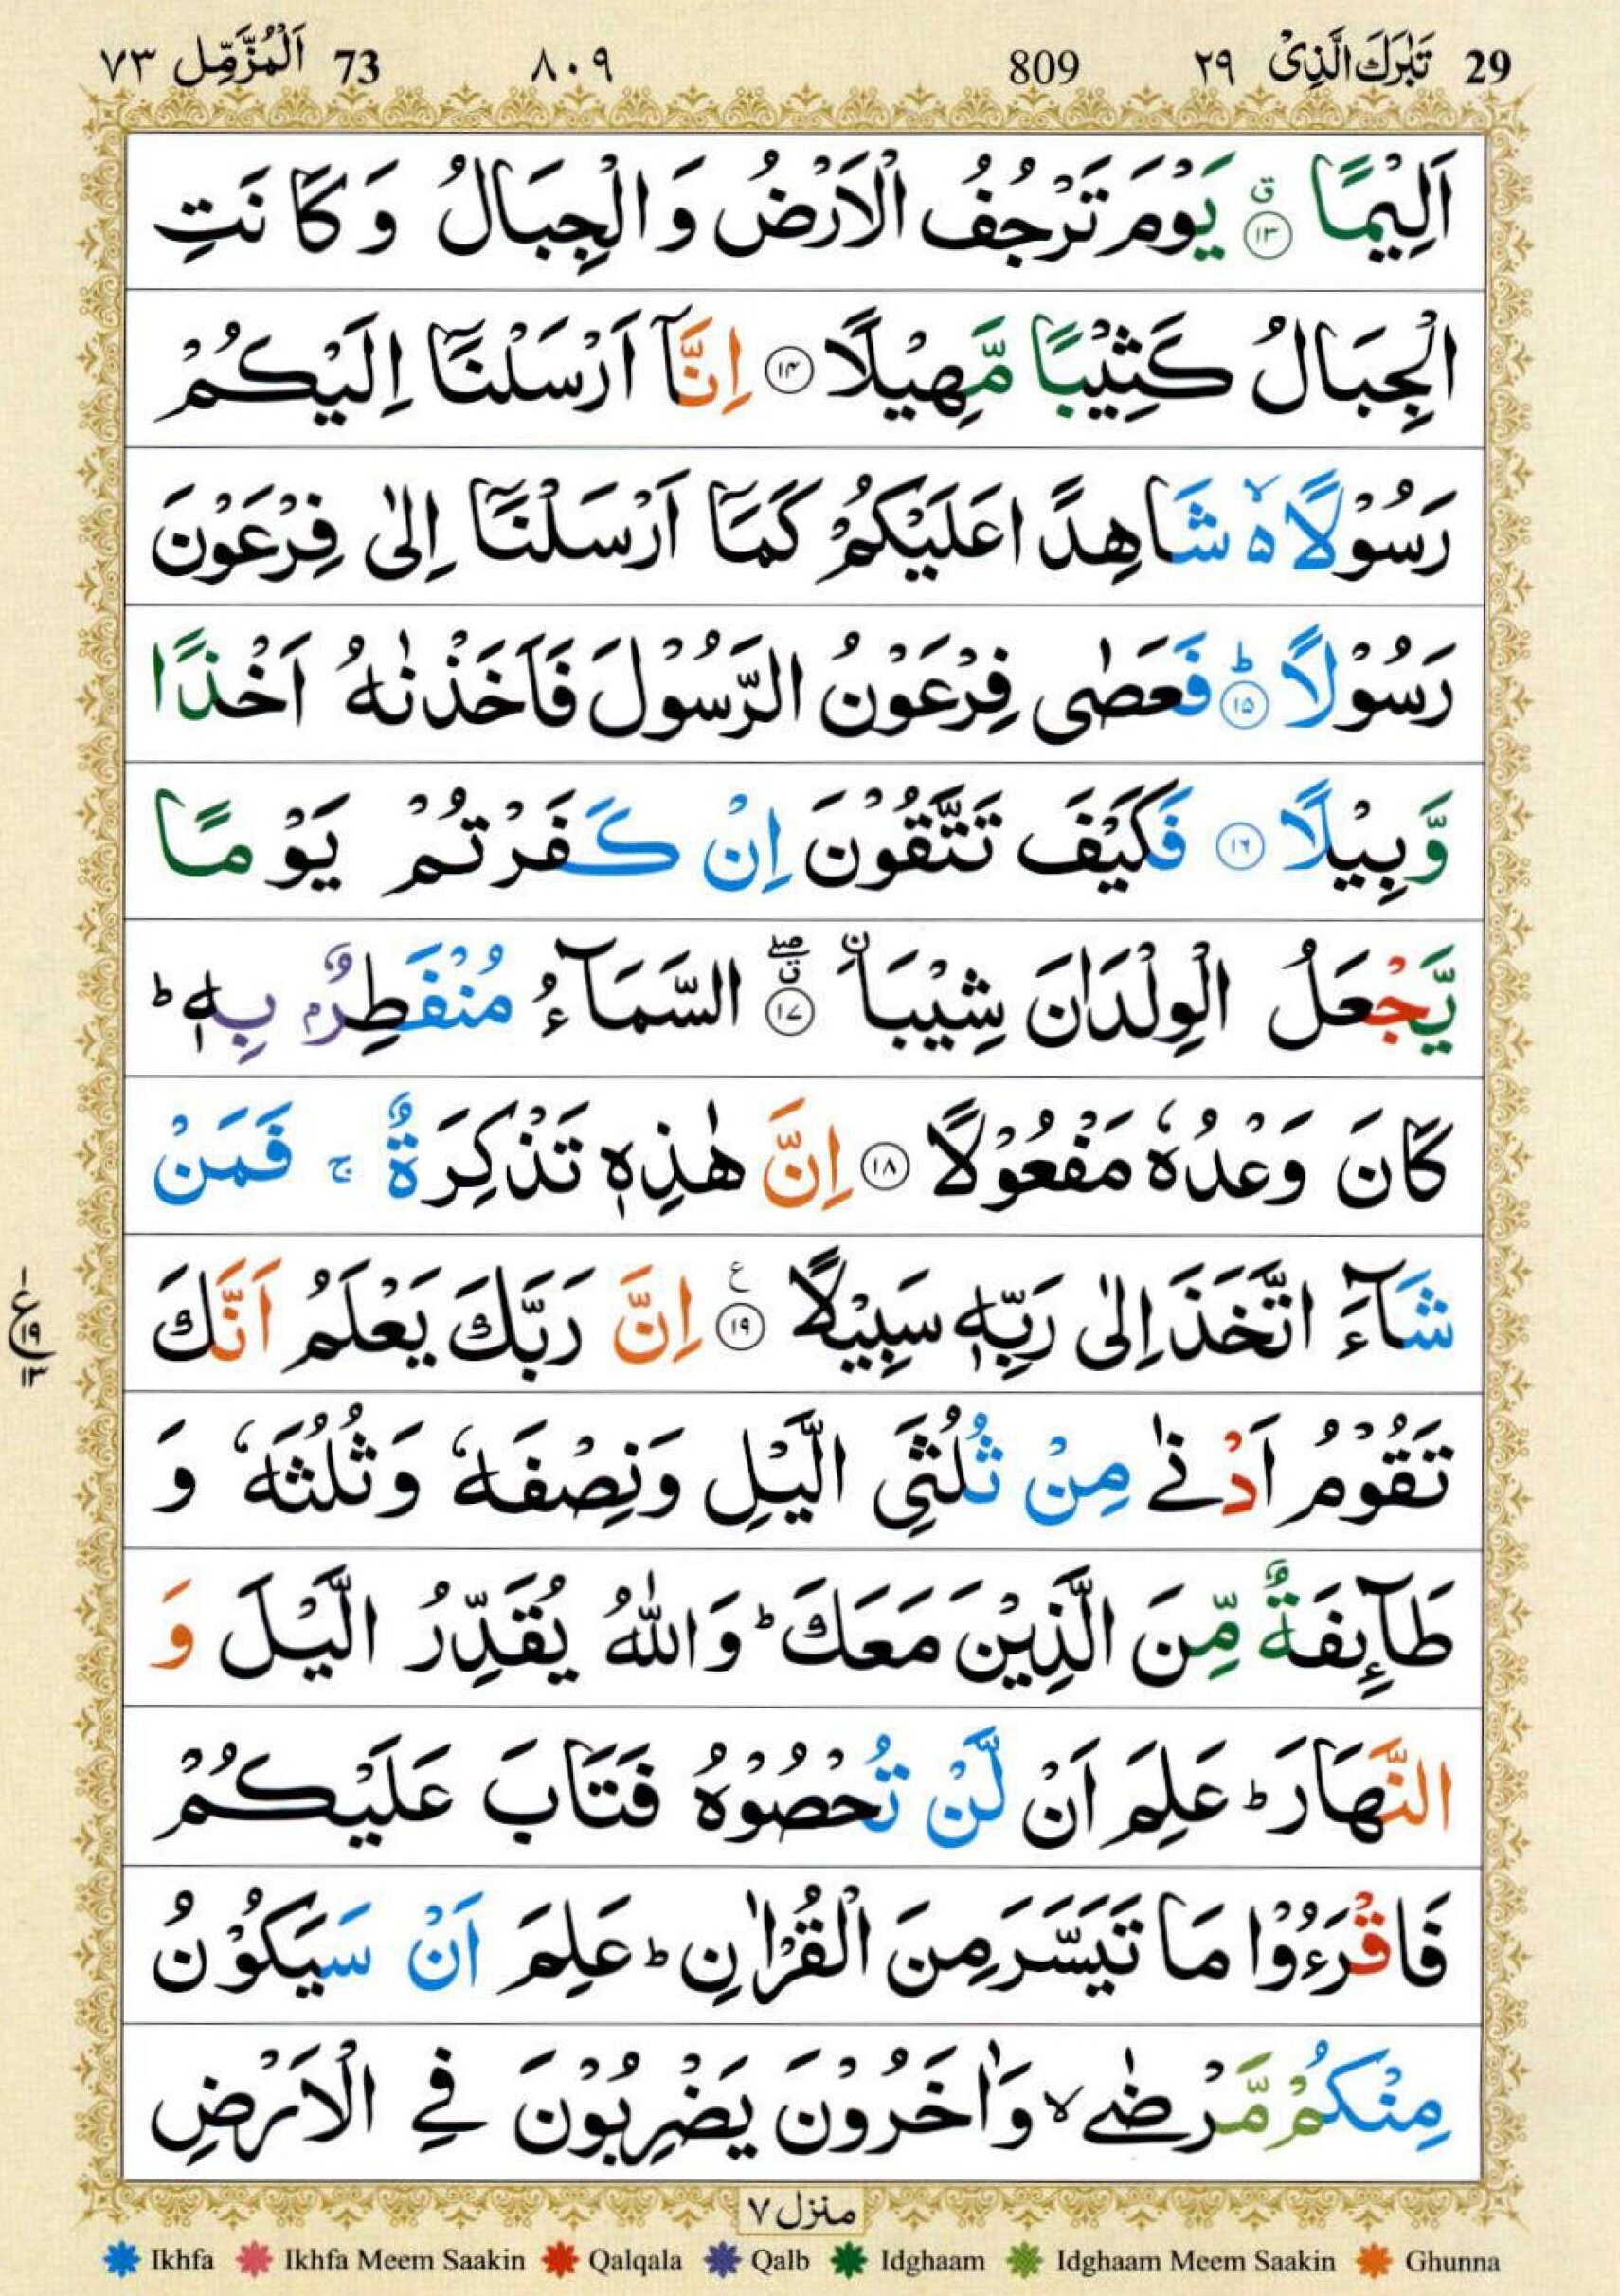 29 تَبٰرَكَ الَّذِىْ ٢٩ 809 ٨٠٩ 73 اَلْمُزَّمِّل ٧٣
اَلِيْمًا ۙق ١٣ يَوْمَ تَرْجُفُ الْاَرْضُ وَ الْجِبَالُ وَ كَانَتِ
الْجِبَالُ كَثِيْبًا مَّهِيْلًا ١٤ اِنَّاۤ اَرْسَلْنَاۤ اِلَيْكُمْ
رَسُوْلًا ۵ۙ شَاهِدًا عَلَيْكُمْ كَمَاۤ اَرْسَلْنَاۤ اِلٰى فِرْعَوْنَ
رَسُوْلًا ؕ ١٥ فَعَصٰى فِرْعَوْنُ الرَّسُوْلَ فَاَخَذْنٰهُ اَخْذًا
وَّبِيْلًا ١٦ فَكَيْفَ تَتَّقُوْنَ اِنْ كَفَرْتُمْ يَوْمًا
يَّجْعَلُ الْوِلْدَانَ شِيْبَاۨ ۖق ١٧ السَّمَآءُ مُنْفَطِرٌۢ بِهٖ ؕ
كَانَ وَعْدُهٗ مَفْعُوْلًا ١٨ اِنَّ هٰذِهٖ تَذْكِرَةٌ ۚ فَمَنْ
شَآءَ اتَّخَذَ اِلٰى رَبِّهٖ سَبِيْلًا ع ١٩ اِنَّ رَبَّكَ يَعْلَمُ اَنَّكَ
ع ١٩ ١٣
تَقُوْمُ اَدْنٰے مِنْ ثُلُثَىِ الَّيْلِ وَنِصْفَهٗ وَثُلُثَهٗ وَ
طَآئِفَةٌ مِّنَ الَّذِيْنَ مَعَكَ ؕ وَاللّٰهُ يُقَدِّرُ الَّيْلَ وَ
النَّهَارَ ؕ عَلِمَ اَنْ لَّنْ تُحْصُوْهُ فَتَابَ عَلَيْكُمْ
فَاقْرَءُوْا مَا تَيَسَّرَ مِنَ الْقُرْاٰنِ ؕ عَلِمَ اَنْ سَيَكُوْنُ
مِنْكُمْ مَّرْضٰے ۙ وَاٰخَرُوْنَ يَضْرِبُوْنَ فِے الْاَرْضِ
منزل ٧
Ikhfa Ikhfa Meem Saakin Qalqala Qalb Idghaam Idghaam Meem Saakin Ghunna